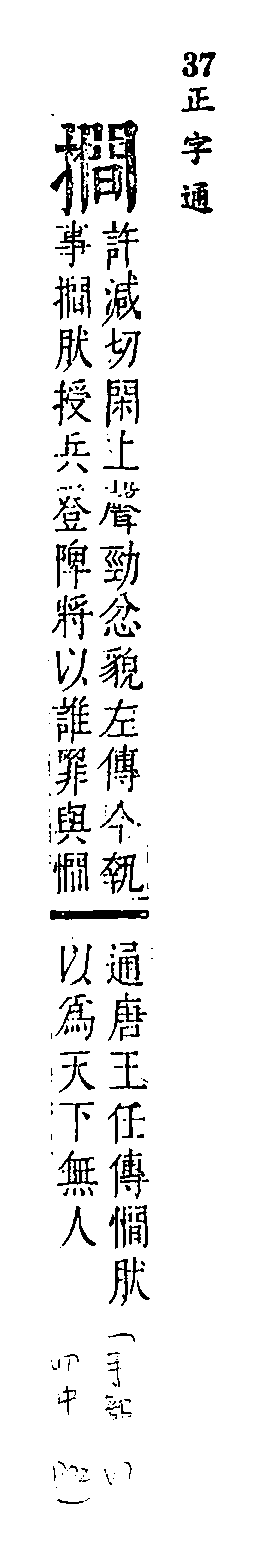 37 正字通
撊
許減切閑上聲勁忿貌左傳今執
事撊肰授兵登陴將以誰罪與憪
通唐王任傳憪肰
以爲天下無人
(手部